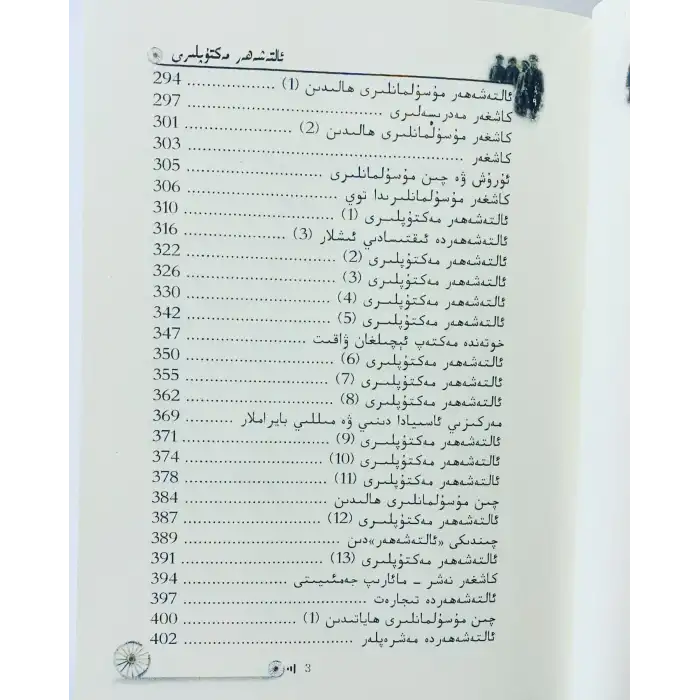 ئالتەشەھەر مەكتۇپلىرى
ئالتەشەھەر مۇسۇلمانلىرى ھالىدىن (1) ................. 294
كاشغەر مەدرىسەلىرى ................. 297
كاشغەر مۇسۇلمانلىرى ھالىدىن (2) ................. 301
كاشغەر ................. 303
ئۇرۇش ۋە چىن مۇسۇلمانلىرى ................. 305
كاشغەر مۇسۇلمانلىرىدا توي ................. 306
ئالتەشەھەر مەكتۇپلىرى (1) ................. 310
ئالتەشەھەردە ئىقتىسادىي ئىشلار (3) ................. 316
ئالتەشەھەر مەكتۇپلىرى (2) ................. 322
ئالتەشەھەر مەكتۇپلىرى (3) ................. 326
ئالتەشەھەر مەكتۇپلىرى (4) ................. 330
ئالتەشەھەر مەكتۇپلىرى (5) ................. 342
خوتەندە مەكتەپ ئېچىلغان ۋاقىت ................. 347
ئالتەشەھەر مەكتۇپلىرى (6) ................. 350
ئالتەشەھەر مەكتۇپلىرى (7) ................. 355
ئالتەشەھەر مەكتۇپلىرى (8) ................. 362
مەركىزىي ئاسىيادا دىنىي ۋە مىللىي بايراملار .......... 369
ئالتەشەھەر مەكتۇپلىرى (9) ................. 371
ئالتەشەھەر مەكتۇپلىرى (10) ................. 374
ئالتەشەھەر مەكتۇپلىرى (11) ................. 378
چىن مۇسۇلمانلىرى ھالىدىن ................. 384
ئالتەشەھەر مەكتۇپلىرى (12) ................. 387
چىندىكى «ئالتەشەھەر»دىن ................. 389
ئالتەشەھەر مەكتۇپلىرى (13) ................. 391
كاشغەر نەشر ـ مائارىپ جەمئىيىتى ................. 394
ئالتەشەھەردە تىجارەت ................. 397
چىن مۇسۇلمانلىرى ھاياتىدىن (1) ................. 400
ئالتەشەھەردە مەشرەپلەر ................. 402
3